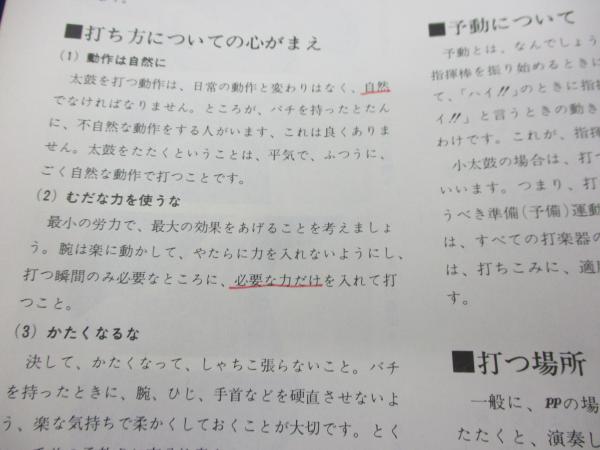 ■打ち方についての心がまえ
(1) 動作は自然に
太鼓を打つ動作は、日常の動作と変わりはなく、自然
でなければなりません。ところが、バチを持ったとたん
に、不自然な動作をする人がいます、これは良くありま
せん。太鼓をたたくということは、平気で、ふつうに、
ごく自然な動作で打つことです。
(2) むだな力を使うな
最小の労力で、最大の効果をあげることを考えましょ
う。腕は楽に動かして、やたらに力を入れないようにし、
打つ瞬間のみ必要なところに、必要な力だけを入れて打
つこと。
(3) かたくなるな
決して、かたくなって、しゃちこ張らないこと。バチ
を持ったときに、腕、ひじ、手首などを硬直させないよ
う、楽な気持ちで柔かくしておくことが大切です。とく
■予動について
予動とは、なんでしょう
指揮棒を振り始めるときに
て、「ハイ!!」のときに指
イ!!」と言うときの動き
わけです。これが、指揮
小太鼓の場合は、打つ
いいます。つまり、打
うべき準備(予備)運動
は、すべての打楽器の
は、打ちこみに、適
す。
■打つ場所
一般に、PPの場
たたくと、演奏し